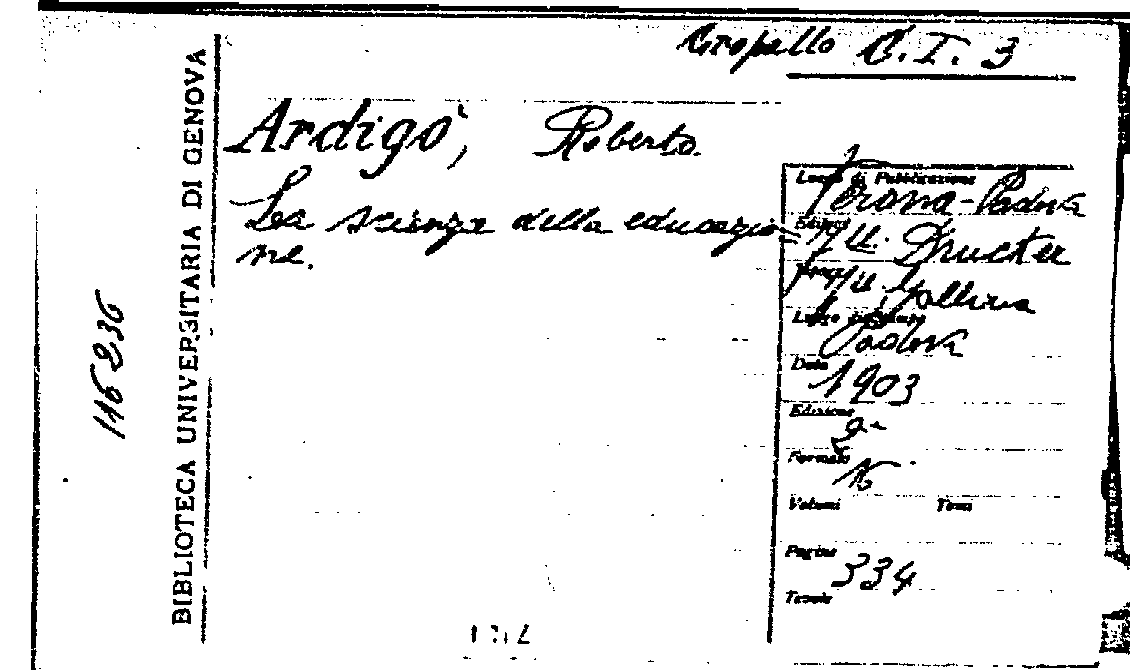 Gropallo C.I. 3
BIBLIOTECA UNIVERSITARIA DI GENOVA
116236
Ardigò, Roberto
La scienza della educazio=
ne.
Luogo di Pubblicazione
Verona-Padova
Drucker
Padova
Data
1903
Edizione
2ª
Formato
16
Volumi Tomi
Pagine
334
Tavole